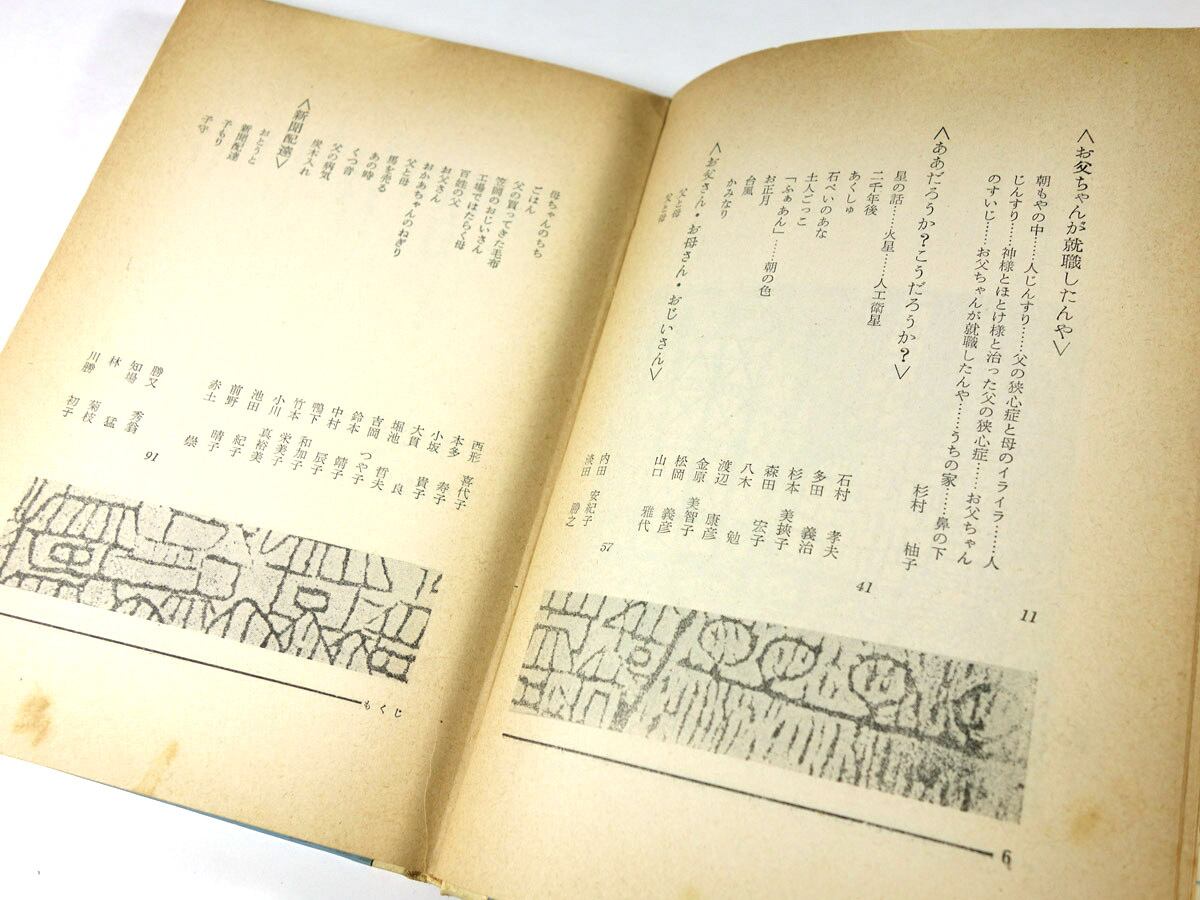 〈お父ちゃんが就職したんや〉
朝もやの中……人じんすり……父の狭心症と母のイライラ……人
じんすり……神様とほとけ様と治った父の狭心症……お父ちゃん
のすいじ……お父ちゃんが就職したんや……うちの家……鼻の下
杉村 柚子
11
〈ああだろうか?こうだろうか?〉
星の話……火星……人工衛星
二千年後
あくしゅ
石ぺいのあな
土人ごっこ
「ふぁあん」……朝の色
お正月
台風
かみなり
石村 孝夫
多田 義治
杉本 美挟子
森田 宏子
八木 勉
渡辺 康彦
金原 美智子
松岡 義彦
山口 雅代
41
〈お父さん・お母さん・おじいさん〉
父と母
父と母
内田 安紀子
淡田 勝之
57
6
母ちゃんのちち
ごはん
父の買ってきた毛布
笠岡のおじいさん
工場ではたらく母
百姓の父
お父さん
おかあちゃんのねぎり
父と母
馬を売る
あの時
くつ音
父の病気
炭木入れ
西形 喜代子
本多 寿子
小坂 貴子
大貫 良
堀池 哲夫
吉岡 つや子
鈴本 晴子
中村 辰子
鴨下 和加子
竹本 栄美子
小川 真裕美
池田 紀子
前野 晴子
赤土 崇
〈新聞配達〉
おとうと
新聞配達
子もり
子守
勝又 秀翁
知場 猛
林 菊枝
川勝 初子
91
もくじ